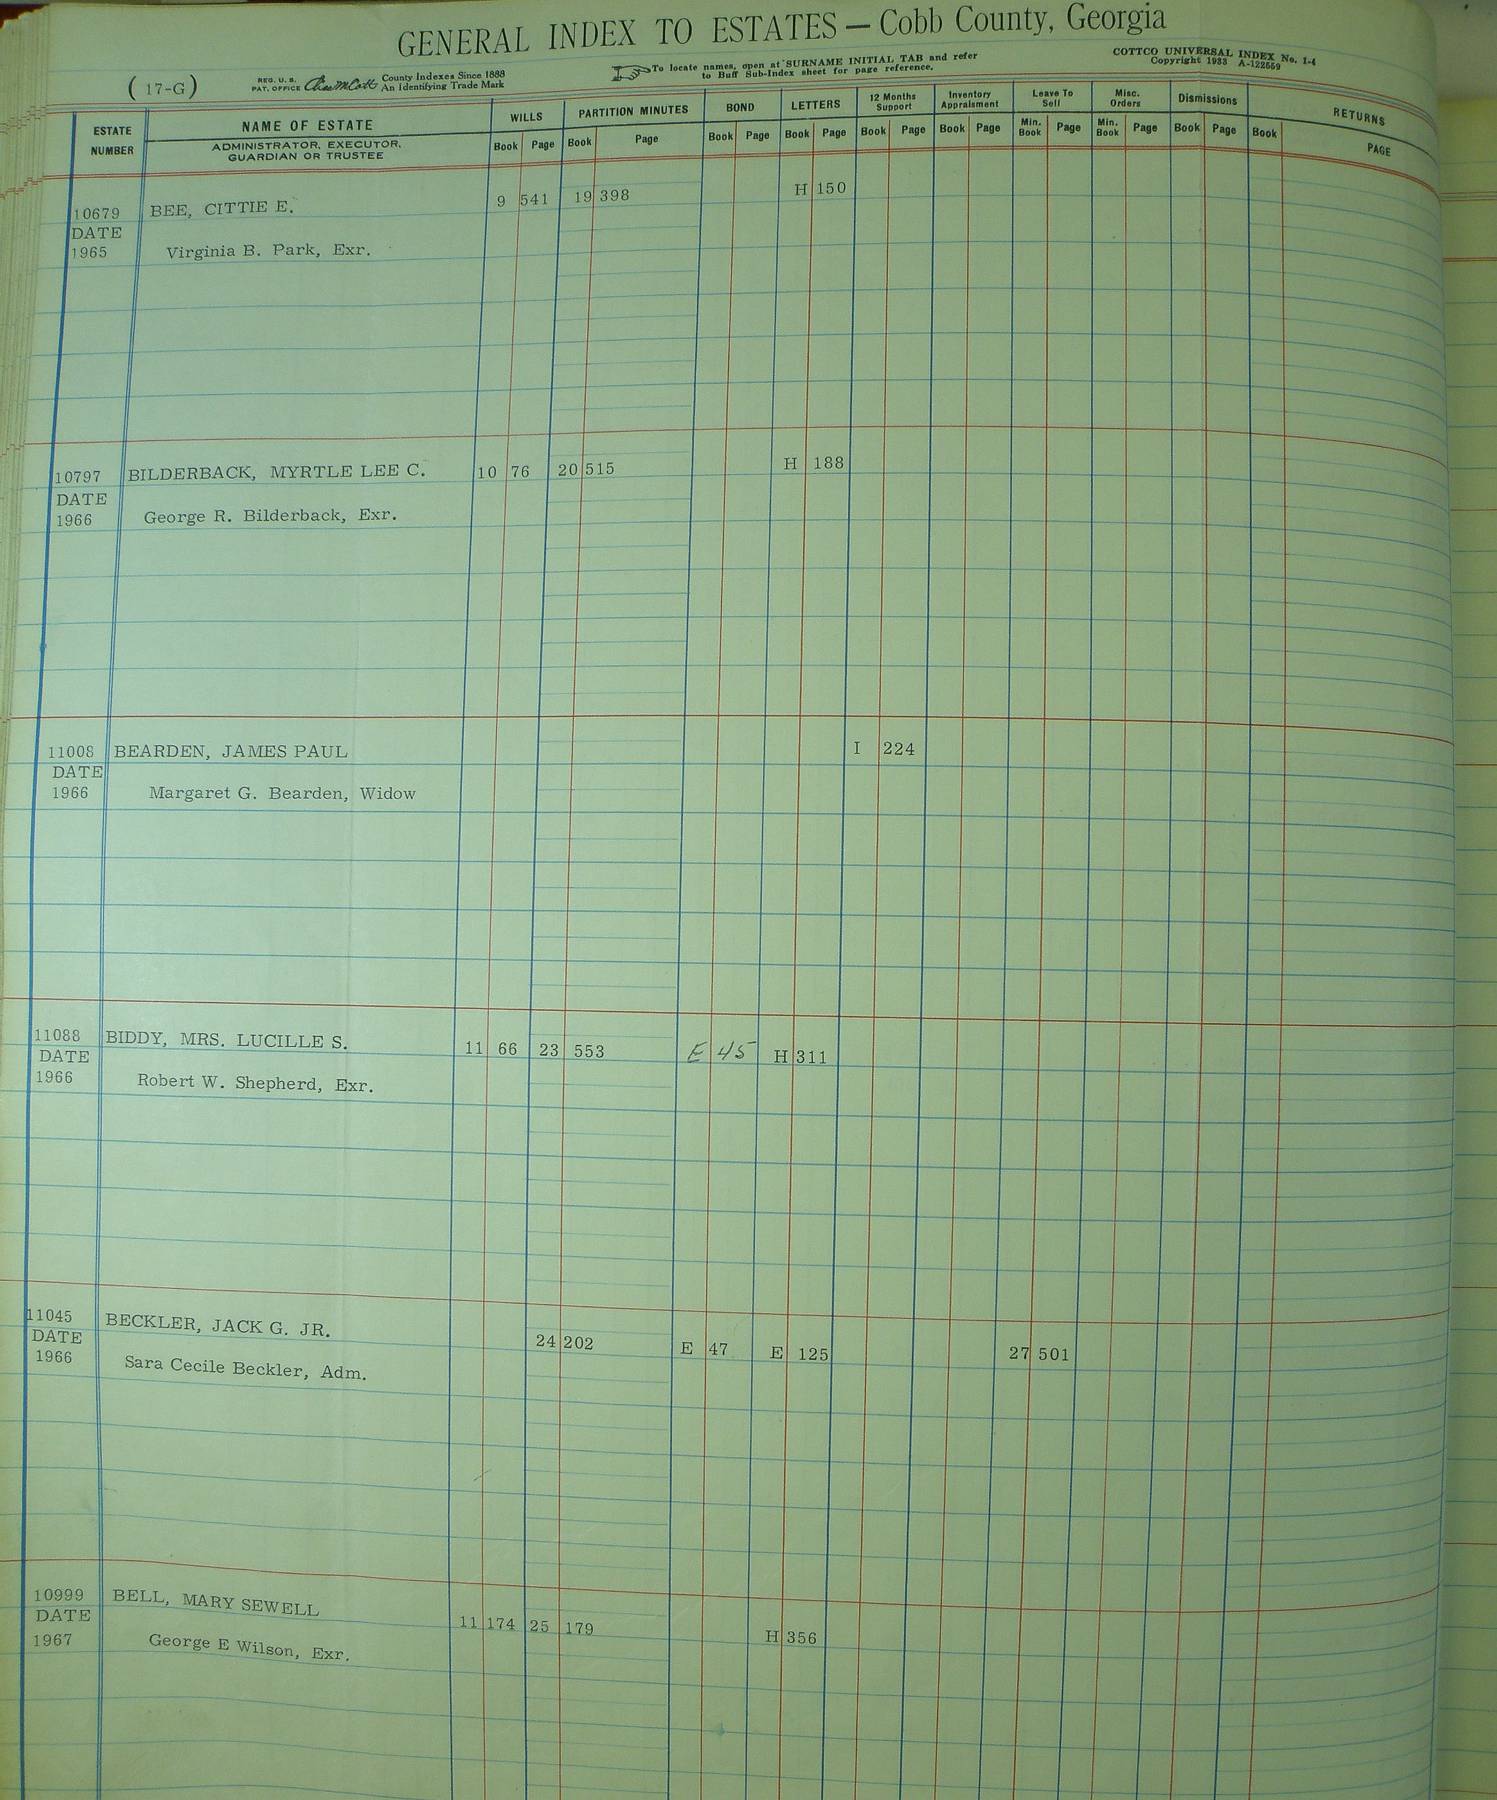 GENERAL INDEX TO ESTATES — Cobb County, Georgia
( 17-G )
REG. U. S. PAT. OFFICE
County Indexes Since 1888
An Identifying Trade Mark
To locate names, open at SURNAME INITIAL TAB and refer
to Buff Sub-Index sheet for page reference.
COTTCO UNIVERSAL INDEX No. 1-4
Copyright 1933 A-122559
ESTATE NUMBER
NAME OF ESTATE
ADMINISTRATOR, EXECUTOR,
GUARDIAN OR TRUSTEE
WILLS PARTITION MINUTES BOND LETTERS 12 Months Support Inventory Appraisment Leave To Sell Misc. Orders Dismissions RETURNS
Book Page Book Page Book Page Book Page Book Page Book Page Min. Book Page Min. Book Page Book Page Book PAGE
10679 BEE, CITTIE E. 9 541 19 398 H 150
DATE
1965 Virginia B. Park, Exr.
10797 BILDERBACK, MYRTLE LEE C. 10 76 20 515 H 188
DATE
1966 George R. Bilderback, Exr.
11008 BEARDEN, JAMES PAUL I 224
DATE
1966 Margaret G. Bearden, Widow
11088 BIDDY, MRS. LUCILLE S. 11 66 23 553 E 45 H 311
DATE
1966 Robert W. Shepherd, Exr.
11045 BECKLER, JACK G. JR. 24 202 E 47 E 125 27 501
DATE
1966 Sara Cecile Beckler, Adm.
10999 BELL, MARY SEWELL 11 174 25 179 H 356
DATE
1967 George E Wilson, Exr.